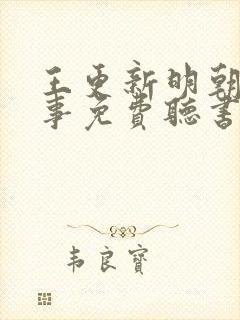 王更新明朝
事免費聽書
韦良寶